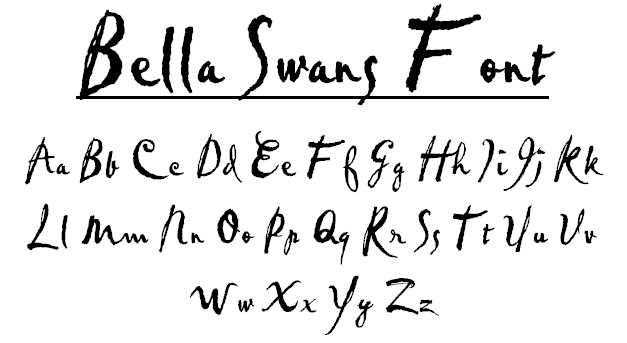 Bella Swans Font
Aa Bb Cc Dd Ee Ff Gg Hh Ii Jj Kk
Ll Mm Nn Oo Pp Qq Rr Ss Tt Uu Vv
Ww Xx Yy Zz